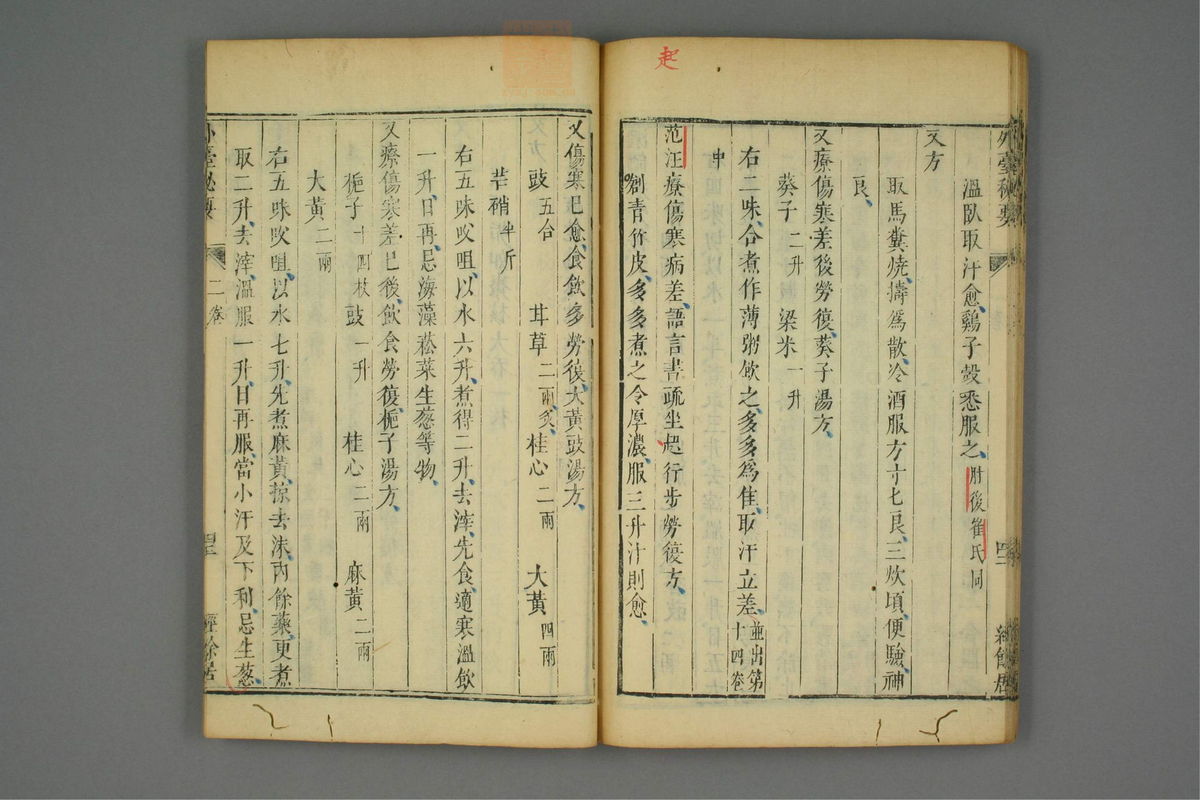 起
外臺秘要
溫臥取汗愈、鷄子殼悉服之、肘後崔氏同
又方
取馬糞燒、擣爲散、冷酒服方寸匕良、三炊頃、便驗、神
良、
又療傷寒差後勞復、葵子湯方、
葵子二升 梁米一升
右二味、合煮作薄粥飲之、多多爲佳、取汗立差、並出第十四卷
中
范汪療傷寒病差、語言書疏坐起行步勞復方、
劀青竹皮、多多煮之令厚濃、服三升汁則愈、
又傷寒已愈、食飲多勞復、大黃豉湯方、
豉五合 甘草二兩炙 桂心二兩 大黃四兩
芒硝半斤
右五味㕮咀、以水六升、煮得二升、去滓、先食、適寒溫飲
一升、日再、忌海藻菘菜生葱等物、
又療傷寒差已後、飲食勞復、梔子湯方、
梔子十四枚 豉一升 桂心二兩 麻黃二兩
大黃二兩
右五味㕮咀、以水七升、先煮麻黃、掠去沫、內餘藥、更煮
取二升、去滓、溫服一升、日再服、當小汗及下利、忌生葱、
外臺秘要 二卷